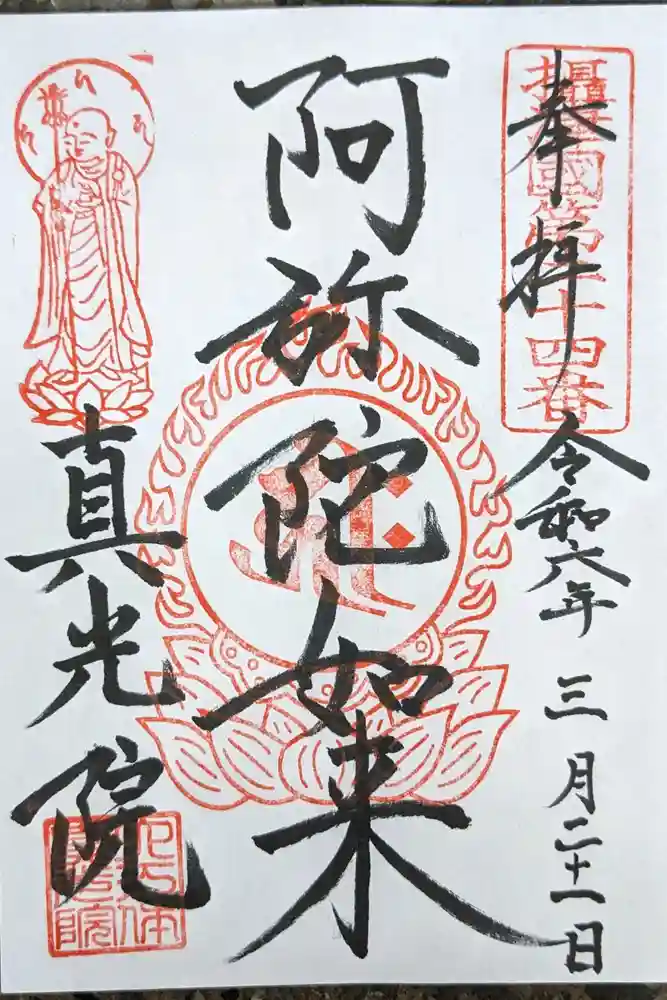 奉拝
摂津國第二十四番
令和六年三月二十一日
阿弥陀如来
真光院